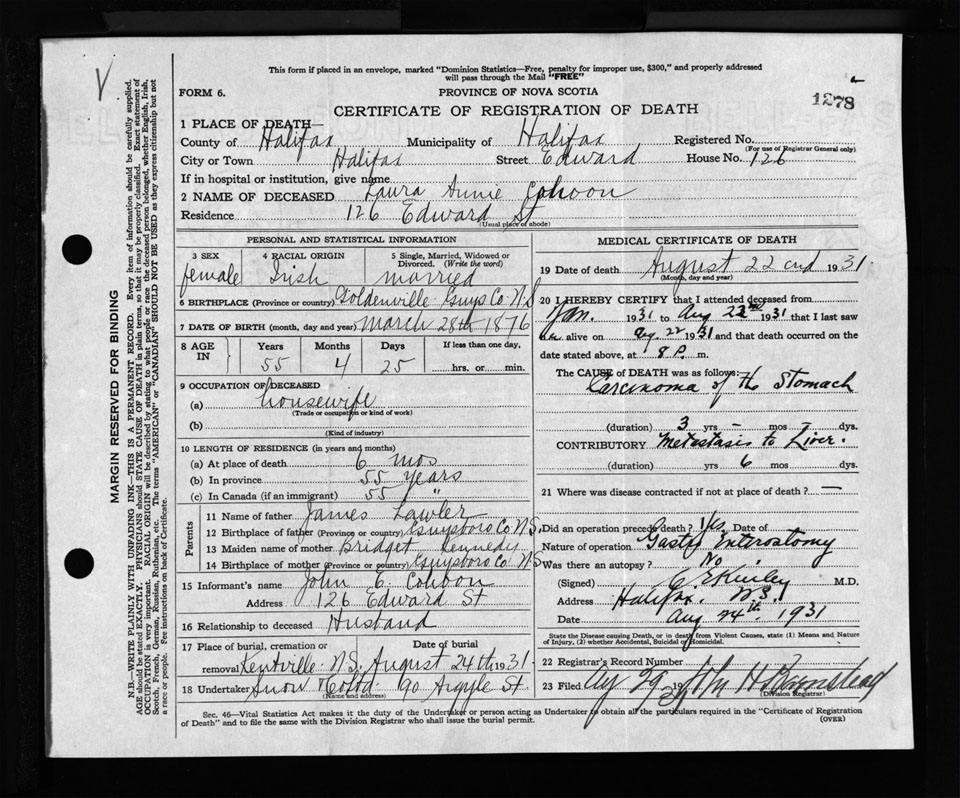 This form if placed in an envelope, marked "Dominion Statistics—Free, penalty for improper use, $300," and properly addressed
will pass through the Mail "FREE"
FORM 6.
PROVINCE OF NOVA SCOTIA
1278
CERTIFICATE OF REGISTRATION OF DEATH
1 PLACE OF DEATH—
County of Halifax Municipality of Halifax Registered No.
(For use of Registrar General only)
City or Town Halifax Street Edward House No. 126
If in hospital or institution, give name
2 NAME OF DECEASED Laura Annie Cohoon
Residence 126 Edward St
(Usual place of abode)
PERSONAL AND STATISTICAL INFORMATION
3 SEX 4 RACIAL ORIGIN 5 Single, Married, Widowed or Divorced. (Write the word)
female Irish married
6 BIRTHPLACE (Province or country) Goldenville Guys Co. N.S
7 DATE OF BIRTH (month, day and year) March 28th 1876
8 AGE IN Years Months Days If less than one day,
55 4 25 hrs. or min.
9 OCCUPATION OF DECEASED
(a) housewife
(Trade or occupation or kind of work)
(b)
(Kind of industry)
10 LENGTH OF RESIDENCE (in years and months)
(a) At place of death 6 mos
(b) In province 55 years
(c) In Canada (if an immigrant) 55 "
Parents
11 Name of father James Lawler
12 Birthplace of father (Province or country) Guysboro Co N.S.
13 Maiden name of mother Bridget Kennedy
14 Birthplace of mother (Province or country) Guysboro Co. N.S
15 Informant's name John E. Cohoon
Address 126 Edward St
16 Relationship to deceased Husband
17 Place of burial, cremation or removal Date of burial
Kentville N.S. August 24th 1931
18 Undertaker Snow 90 Argyle St
(Name and address)
MEDICAL CERTIFICATE OF DEATH
19 Date of death August 22nd 1931
(Month, day and year)
20 I HEREBY CERTIFY that I attended deceased from
Jan. 1931 to Aug 22nd 1931 that I last saw
alive on Aug 22 1931 and that death occurred on the
date stated above, at 8 P. m.
The CAUSE of DEATH was as follows:
Carcinoma of the Stomach
(duration) 3 yrs – mos – dys.
CONTRIBUTORY Metastasis to Liver.
(duration) yrs 6 mos dys.
21 Where was disease contracted if not at place of death? —
Did an operation precede death? Yes Date of
Nature of operation Gastro Enterostomy
Was there an autopsy? No
(Signed) M.D.
Address Halifax. N.S.
Date Aug 24th. 1931
State the Disease causing Death, or in death from Violent Causes, state (1) Means and Nature
of Injury, (2) whether Accidental, Suicidal or Homicidal.
22 Registrar's Record Number
23 Filed Aug 29 1931
Division Registrar
Sec. 46—Vital Statistics Act makes it the duty of the Undertaker or person acting as Undertaker to obtain all the particulars required in the "Certificate of Registration
of Death" and to file the same with the Division Registrar who shall issue the burial permit.
(OVER)
MARGIN RESERVED FOR BINDING
N.B.—WRITE PLAINLY WITH UNFADING INK—THIS IS A PERMANENT RECORD. Every item of information should be carefully supplied.
AGE should be stated EXACTLY. PHYSICIANS should STATE CAUSE OF DEATH in plain terms, so that it may be properly classified. Exact statement of
OCCUPATION is very important. RACIAL ORIGIN will be described by stating to what people or race the deceased person belonged, whether English, Irish,
Scotch, French, German, Russian, Ruthenian, etc. The terms "AMERICAN" or "CANADIAN" SHOULD NOT BE USED as they express citizenship but not
a race or people. Fee instructions on back of Certificate.